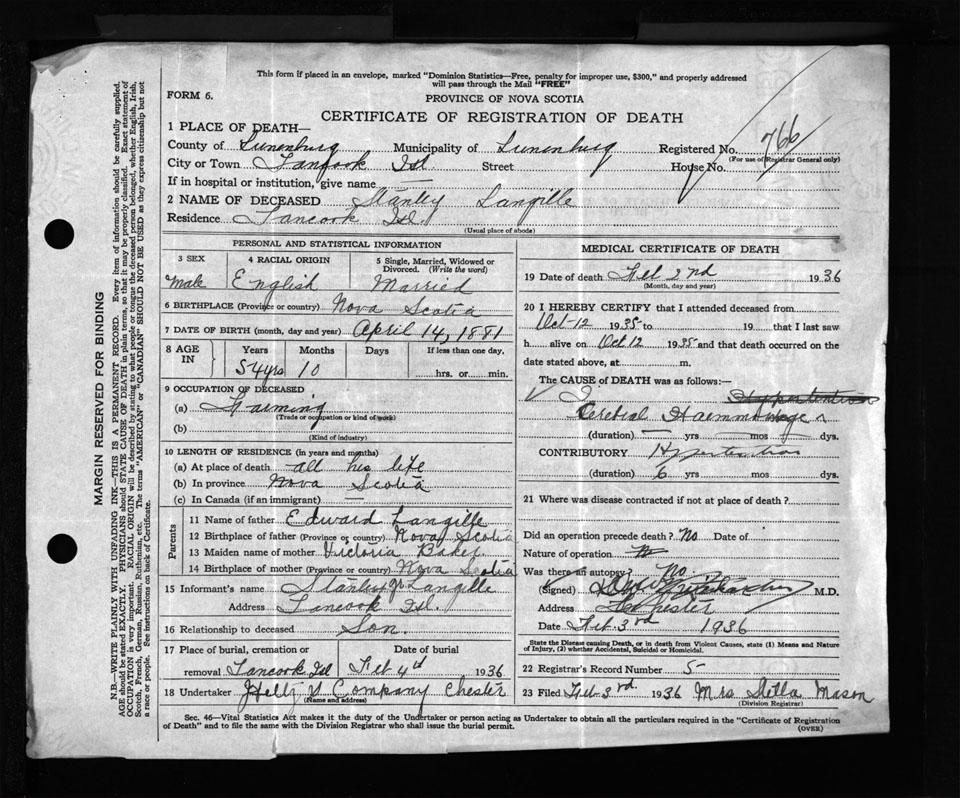 This form if placed in an envelope, marked "Dominion Statistics—Free, penalty for improper use, $300," and properly addressed
will pass through the Mail "FREE"
FORM 6.
PROVINCE OF NOVA SCOTIA
CERTIFICATE OF REGISTRATION OF DEATH
1 PLACE OF DEATH—
County of Lunenburg Municipality of Lunenburg Registered No. 766
(For use of Registrar General only)
City or Town Tancook Isl Street House No.
If in hospital or institution, give name
2 NAME OF DECEASED Stanley Langille
Residence Tancook Isl.
(Usual place of abode)
MARGIN RESERVED FOR BINDING
N.B.—WRITE PLAINLY WITH UNFADING INK—THIS IS A PERMANENT RECORD. Every item of information should be carefully supplied.
AGE should be stated EXACTLY. PHYSICIANS should STATE CAUSE OF DEATH in plain terms, so that it may be properly classified. Exact statement of
OCCUPATION is very important. RACIAL ORIGIN will be described by stating to what people or tongue the deceased person belonged, whether English, Irish,
Scotch, French, German, Russian, Ruthenian, etc. The terms "AMERICAN" or "CANADIAN" SHOULD NOT BE USED as they express citizenship but not
a race or people. See instructions on back of Certificate.
PERSONAL AND STATISTICAL INFORMATION
3 SEX
Male
4 RACIAL ORIGIN
English
5 Single, Married, Widowed or
Divorced. (Write the word)
Married
6 BIRTHPLACE (Province or country) Nova Scotia
7 DATE OF BIRTH (month, day and year) April 14, 1881
8 AGE IN
Years
54 yrs
Months
10
Days
If less than one day,
hrs. or min.
9 OCCUPATION OF DECEASED
(a) Farming
(Trade or occupation or kind of work)
(b)
(Kind of industry)
10 LENGTH OF RESIDENCE (in years and months)
(a) At place of death all his life
(b) In province Nova Scotia
(c) In Canada (if an immigrant) —
Parents
11 Name of father Edward Langille
12 Birthplace of father (Province or country) Nova Scotia
13 Maiden name of mother Victoria Baker
14 Birthplace of mother (Province or country) Nova Scotia
15 Informant's name Stanley Jr Langille
Address Tancook Isl.
16 Relationship to deceased Son.
17 Place of burial, cremation or Date of burial
removal Tancook Isl Feb 4th 1936
18 Undertaker & Company Chester
(Name and address)
MEDICAL CERTIFICATE OF DEATH
19 Date of death Feb 2nd 1936
(Month, day and year)
20 I HEREBY CERTIFY that I attended deceased from
Oct-12 1935 to 19 that I last saw
h alive on Oct 12 1935 and that death occurred on the
date stated above, at m.
The CAUSE of DEATH was as follows:—
Hypertention
Cerebral Haemmorage
(duration) — yrs mos dys.
CONTRIBUTORY Hypertention
(duration) 6 yrs mos dys.
21 Where was disease contracted if not at place of death?
Did an operation precede death? No Date of
Nature of operation No
Was there an autopsy? No.
(Signed) M.D.
Address Chester
Date Feb 3rd 1936
State the Disease causing Death, or in death from Violent Causes, state (1) Means and Nature
of Injury, (2) whether Accidental, Suicidal or Homicidal.
22 Registrar's Record Number 5
23 Filed Feb 3rd 1936 Mrs Stella Mason
(Division Registrar)
Sec. 46—Vital Statistics Act makes it the duty of the Undertaker or person acting as Undertaker to obtain all the particulars required in the "Certificate of Registration
of Death" and to file the same with the Division Registrar who shall issue the burial permit.
(OVER)